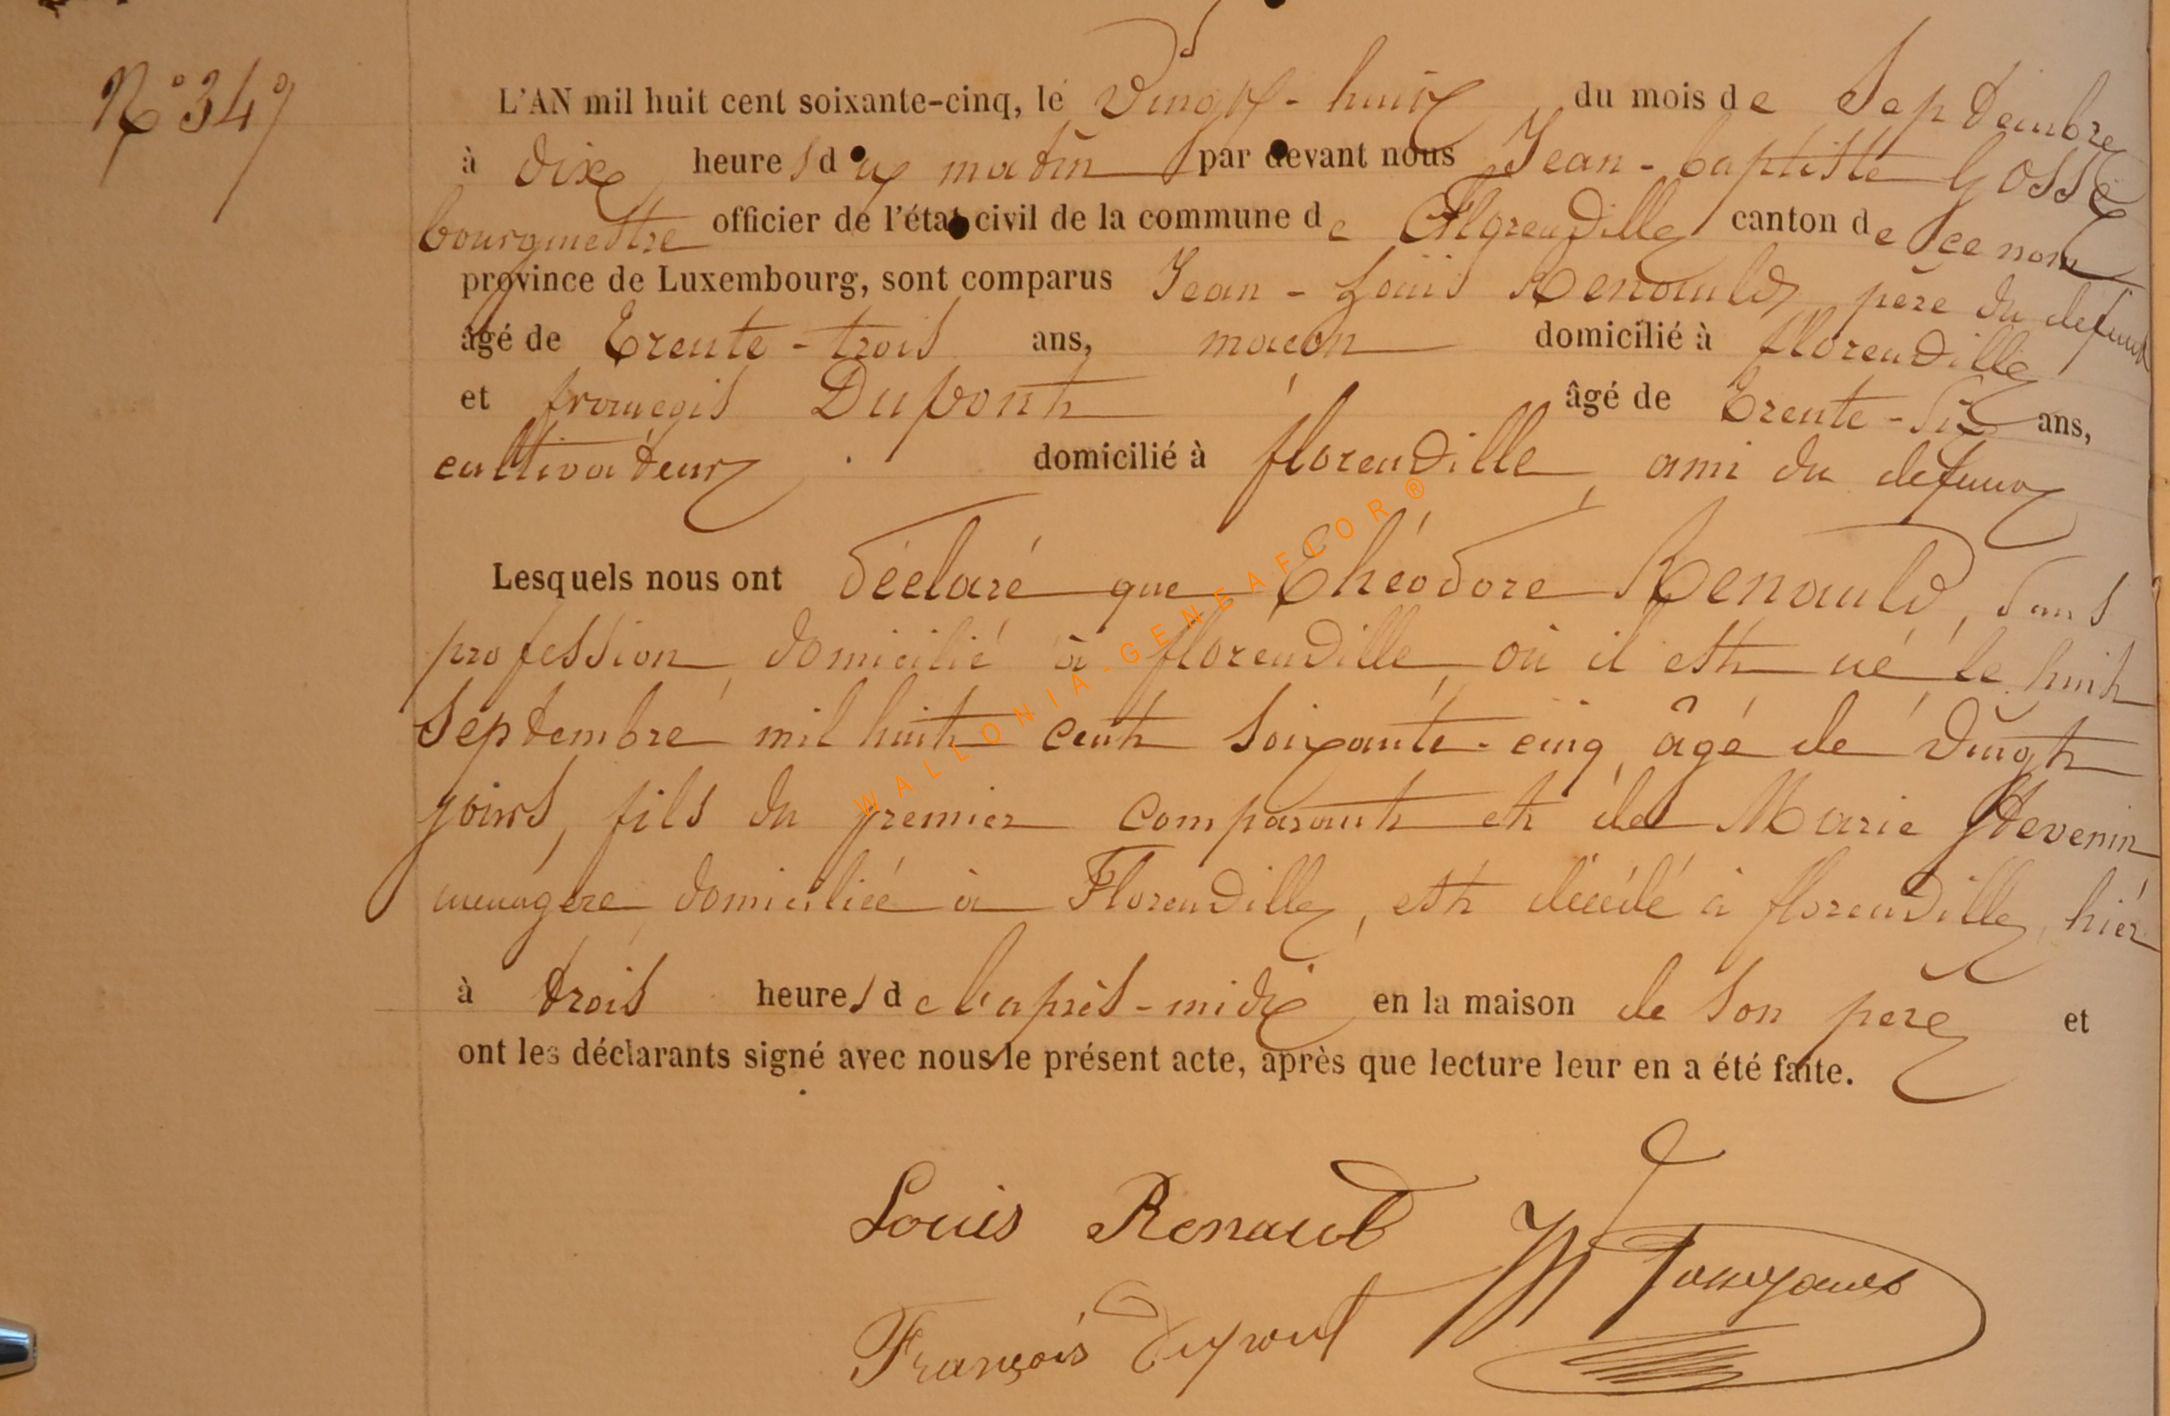 N° 34
L'AN mil huit cent soixante-cinq, le Vingt-huit du mois de Septembre
à dix heures du matin par devant nous Jean-baptiste Gosse
bourgmestre officier de l'état civil de la commune de florenville canton de ce nom
province de Luxembourg, sont comparus Jean-Louis Renauld, père du defunt
âgé de trente-trois ans, macon domicilié à florenville
et françois Dupont âgé de trente-six ans,
cultivateur domicilié à florenville, ami du defunt
Lesquels nous ont déclaré que Théodore Renauld, sans
profession, domicilié à florenville, où il est né le huit
Septembre mil huit cent soixante-cinq, âgé de Vingt
jours, fils du premier comparant et de Marie Stevenin
menagère, domiciliée à Florenville, est décédé à florenville, hier
à trois heures de l'après-midi en la maison de son père et
ont les déclarants signé avec nous le présent acte, après que lecture leur en a été faite.
Louis Renauld
François Dupont
WALLONIA-GENEAFLOR®